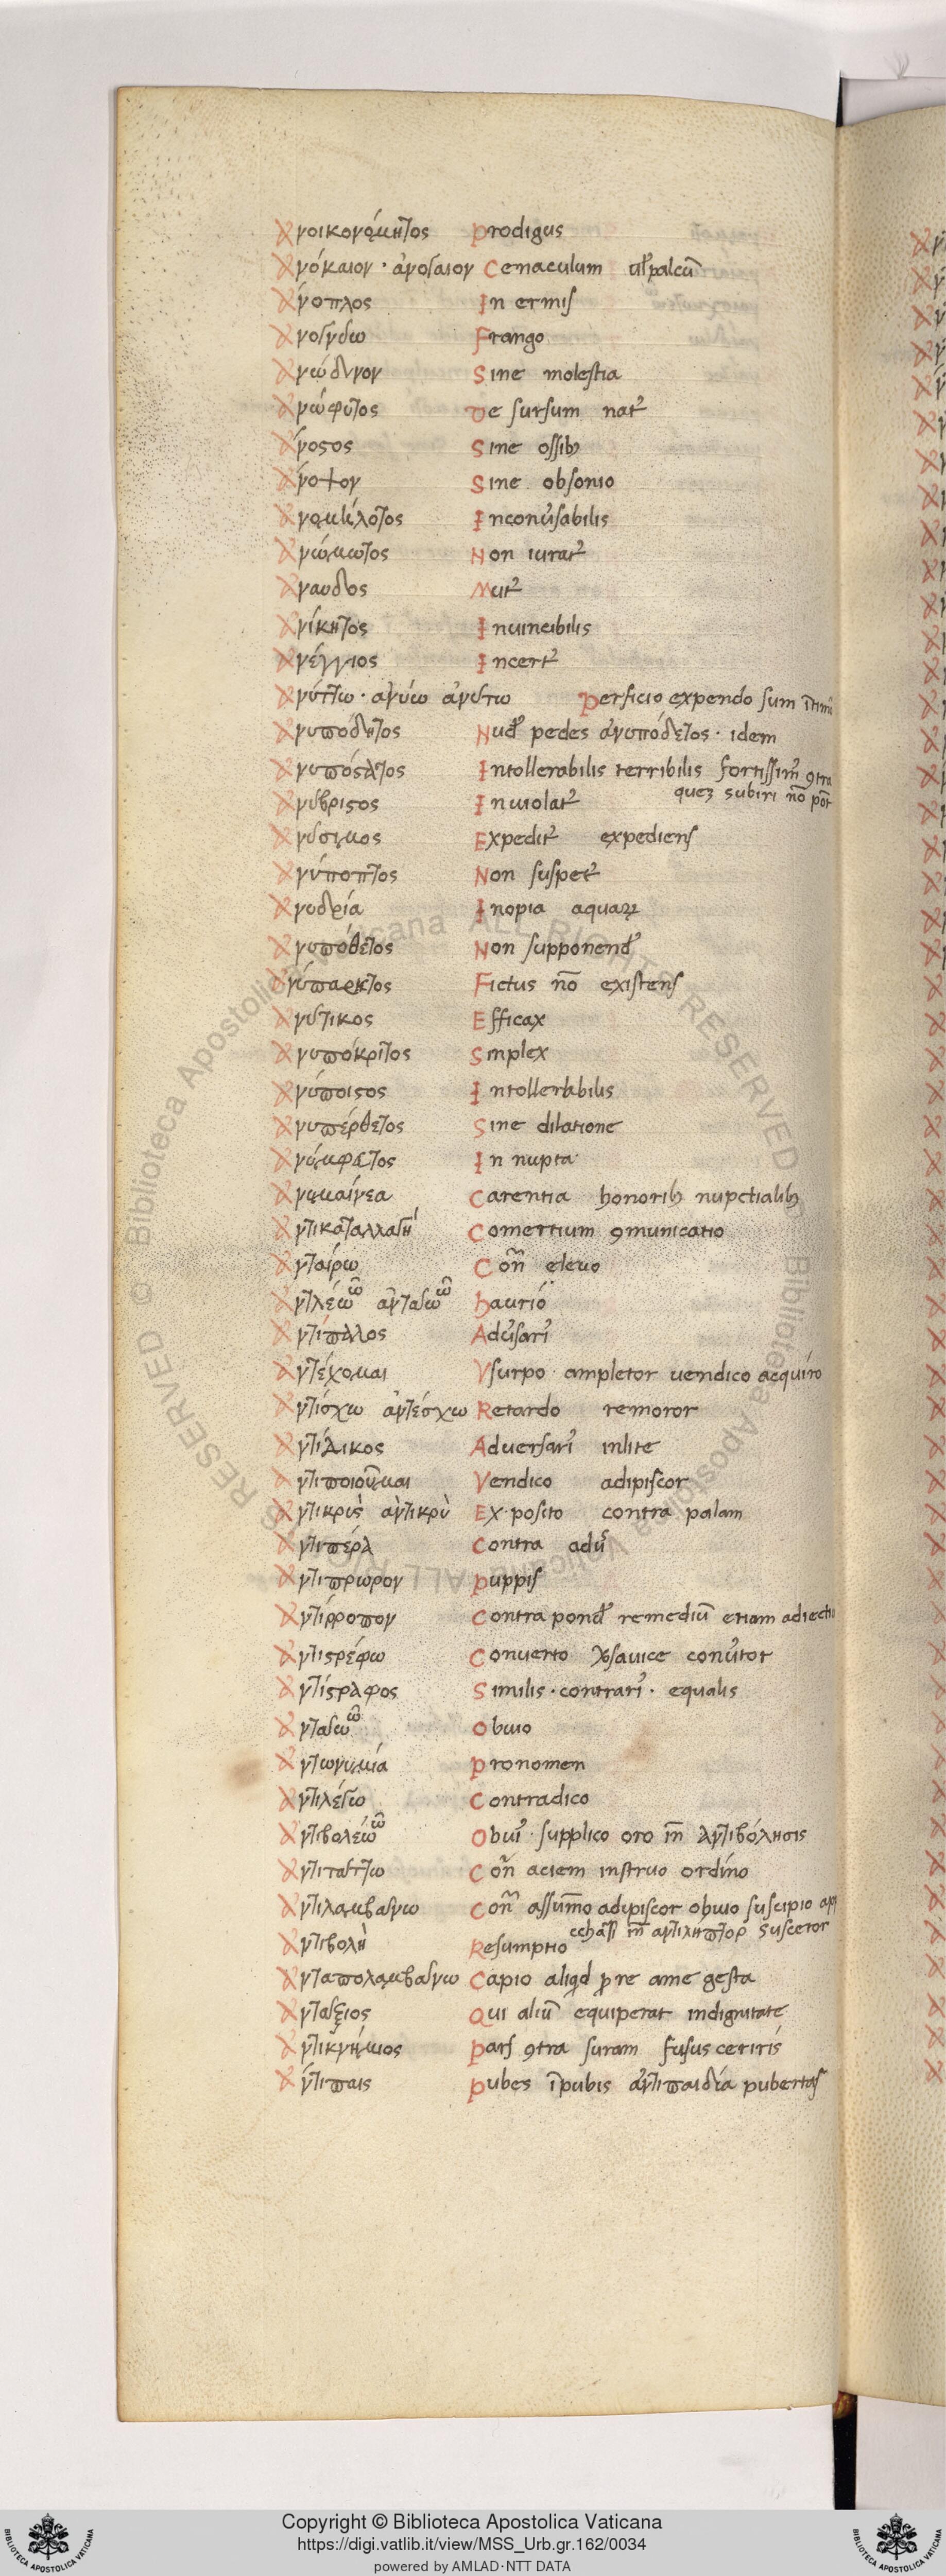 Ἀνοικονόμητος Prodigus
Ἀνόκαιον · ἀνοίαιον Cenaculum ul̃ palcũ
Ἄνοπλος In ermis
Frango
Ἀνώδινον Sine molestia
Ἀνώφυτος De sursum nat᾽
Ἄνοστος Sine ossibꝫ
Ἄνοψον Sine obsonio
Ἀνομίλοτος Inconu᾽sabilis
Ἀνώμωτος Non iurat᾽
Ἄναυδος Mut᾽
Ἀνίκητος Inuincibilis
Ἀνέγγιος Incert᾽
Ἀνύττω · ἀνύω ἀνύτω Perficio expendo sum
Ἀνυπόδητος Nud᾽ pedes ἀνυπόδετος · idem
Ἀνυπόστατος Intollerabilis terribilis fortissim᾽ ꝯtra
quez subiri nõ põt
Ἀνύβριστος Inuiolat᾽
Ἀνύσιμος Expedit᾽ expediens
Ἀνύποπτος Non suspet᾽
Ἀνυδρία Inopia aquaꝝ
Ἀνυπόθετος Non supponend᾽
Ἀνύπαρκτος Fictus nõ existens
Ἀνυτικος Efficax
Ἀνυπόκριτος Smplex
Ἀνύποιστος Intollerabilis
Ἀνυπέρθετος Sine dilatione
Ἀνύμφατος In nupta
Ἀνυμαίνεα Carentia honoribꝫ nupctialibꝫ
Ἀντικαταλλαγή Comertium ꝯmunicatio
Ἀνταίρω Cõñ eleuo
Ἀντλέω ῶ haurio
Ἀντίπαλος Adu᾽sari᾽
Ἀντέχομαι Vsurpo · ampletor uendico acquiro
Ἀντίσχω ἀντέσχω Retardo remoror
Ἀντίδικος Aduersari᾽ inlite
Ἀντιποιοῦμαι Vendico adipiscor
Ἀντικρὺς ἀντικρὺ Ex·posito contra palam
Ἀντιπέρα Contra adu᾽
Ἀντιπρωρον Puppis
Ἀντίρροπον Contra pond᾽ remediũ etiam
Ἀντιστρέφω Conuerto conu᾽tor
Ἀντίστραφος Similis · contrari᾽ · equalis
Obuio
Ἀντωνυμία Pronomen
Ἀντιλέγω Contradico
Ἀντιβολέω ῶ Obui᾽ · supplico oro ĩñ Ἀντιβόλησις
Ἀντιταττω Cõñ aciem instruo ordino
Ἀντιλαμβανω Cõñ assumo adipiscor obuio suscipio
ĩñ ἀντιλήπτορ susceror
Ἀντιβολὴ Resumptio
Ἀνταπολαμβανω Capio aliqd pre ame gesta
Ἀνταξιος Qui aliũ equiperat indignitate
Ἀντικνήμιος Pars ꝯtra suram fusus
Ἀντιπαις Pubes ĩpubis ἀντιπαιδία pubertas